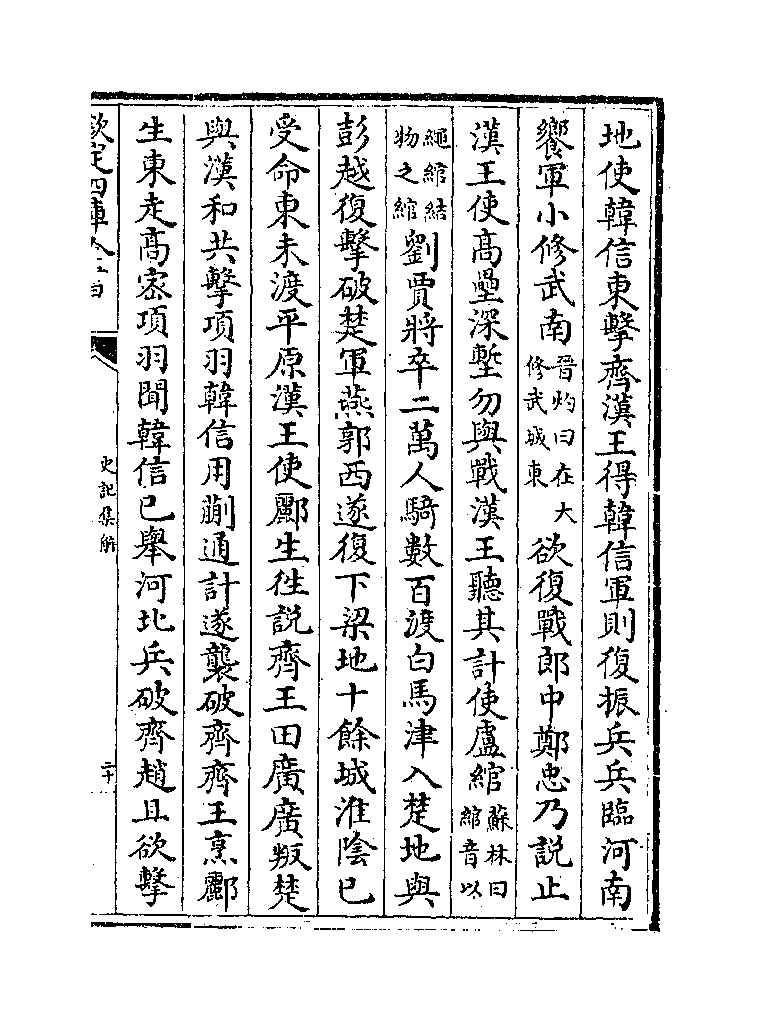 地使韓信東擊齊漢王得韓信軍則復振兵兵臨河南
饗軍小修武南晉灼曰在大修武城東欲復戰郎中鄭忠乃說止
漢王使髙壘深塹勿與戰漢王聽其計使盧綰蘇林曰綰音以
繩綰結物之綰劉賈將卒二萬人騎數百渡白馬津入楚地與
彭越復擊破楚軍燕郭西遂復下梁地十餘城淮陰已
受命東未渡平原漢王使酈生徃説齊王田廣廣叛楚
與漢和共擊項羽韓信用蒯通計遂襲破齊齊王烹酈
生東走髙宻項羽聞韓信已舉河北兵破齊趙且欲擊
欽定四庫全書
史記集解
二十